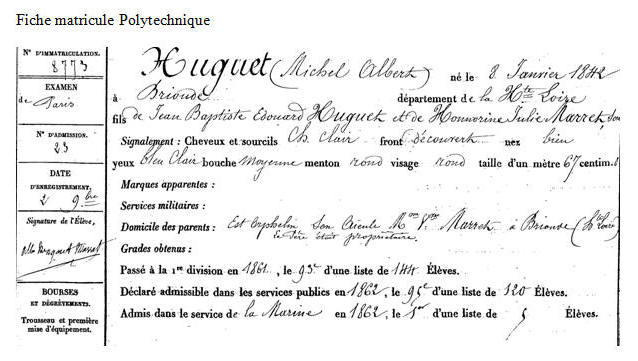 Fiche matricule Polytechnique
N° D'IMMATRICULATION.
8773
EXAMEN
de Paris
N° D'ADMISSION.
23
DATE
D'ENREGISTREMENT.
2 9bre
Signature de l'Élève,
BOURSES
ET DÉGRÈVEMENTS.
Trousseau et première
mise d'équipement.
Huguet (Michel Albert) né le 8 Janvier 1842
à Brioude département de la Hte Loire
fils de Jean Baptiste Edouard Huguet et de Honnorine Julie Marret, son
Signalement : Cheveux et sourcils Ch. Clair front découvert nez bien
yeux bleu Clair bouche moyenne menton rond visage rond taille d'un mètre 67 centim.
Marques apparentes :
Services militaires :
Domicile des parents : Est Orphelin Son Aieule Mme Vve Marret à Brioude (Hte Loire)
le Père était propriétaire.
Grades obtenus :
Passé à la 1re division en 1861, le 93e d'une liste de 144 Élèves.
Déclaré admissible dans les services publics en 1862, le 95e d'une liste de 120 Élèves.
Admis dans le service de la Marine en 1862, le 5e d'une liste de 5 Élèves.